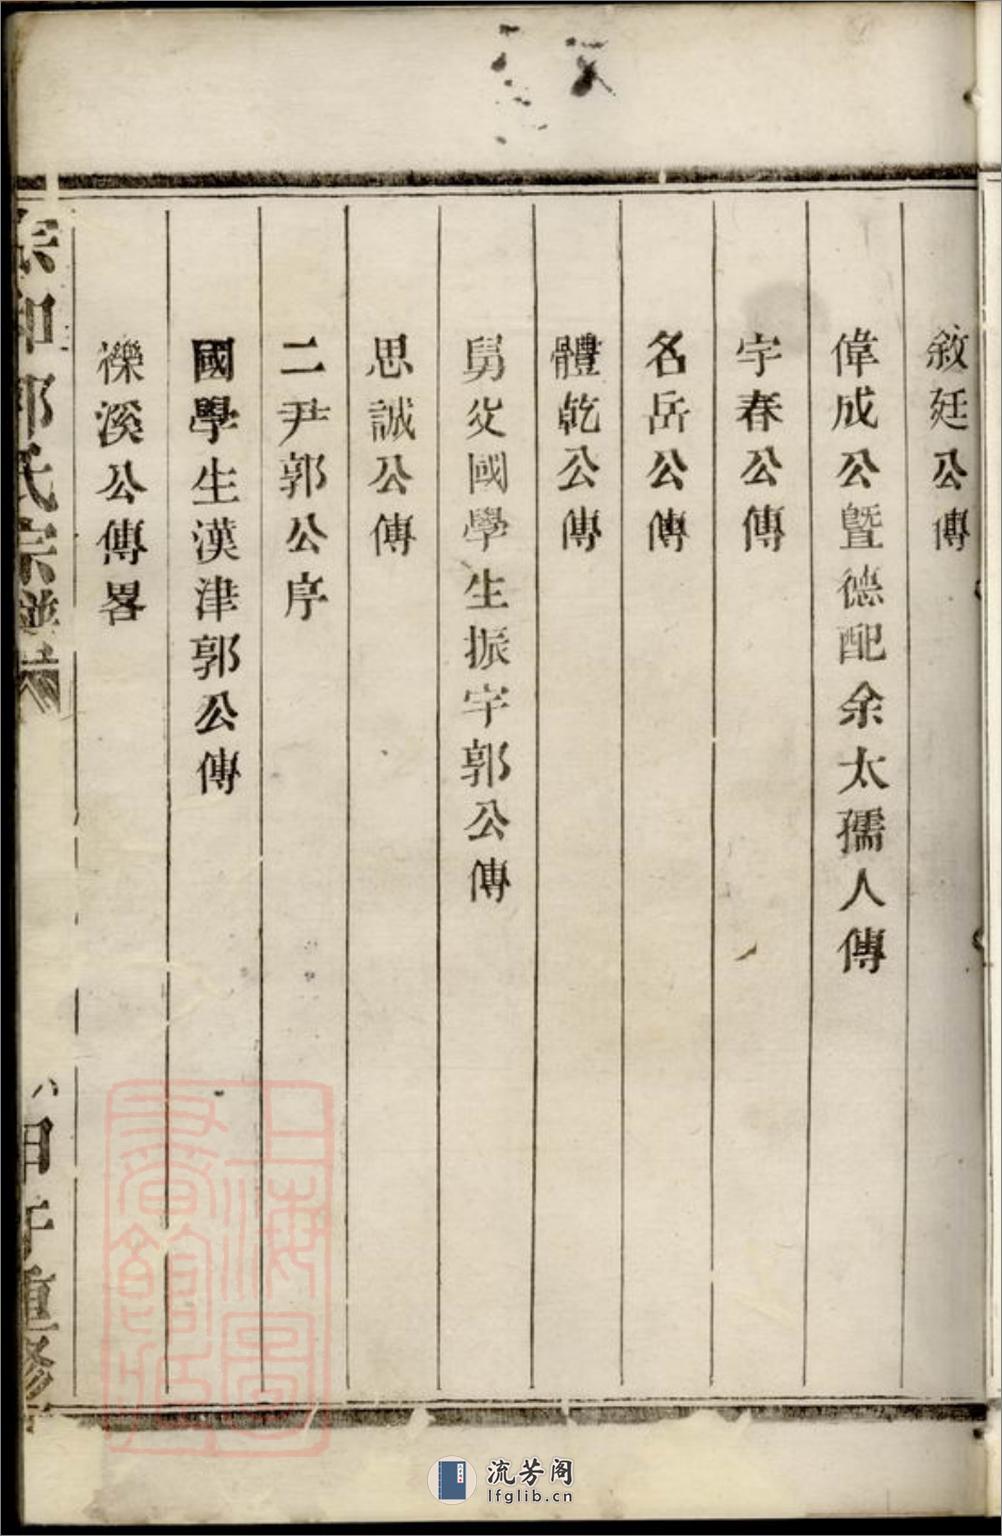 敘廷公傳
偉成公暨德配余太孺人傳
宇春公傳
名岳公傳
體乾公傳
舅父國學生振宇郭公傳
思誠公傳
二尹郭公序
國學生漢津郭公傳
檪溪公傳畧
郭氏宗譜
八
重修
上海圖書館藏
流芳阁
lfglib.cn